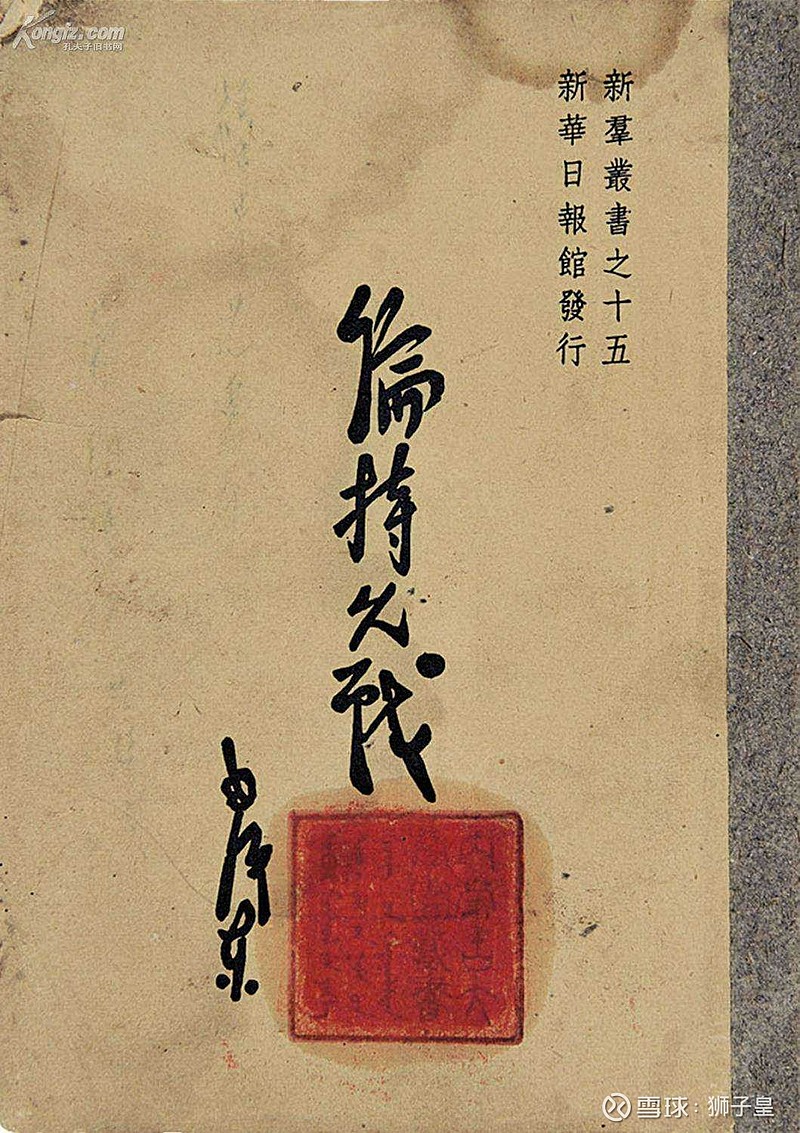 Kongfz.com
孔夫子旧书网
新羣叢書之十五
新華日報館發行
論持久戰
毛澤東
雪球：狮子皇